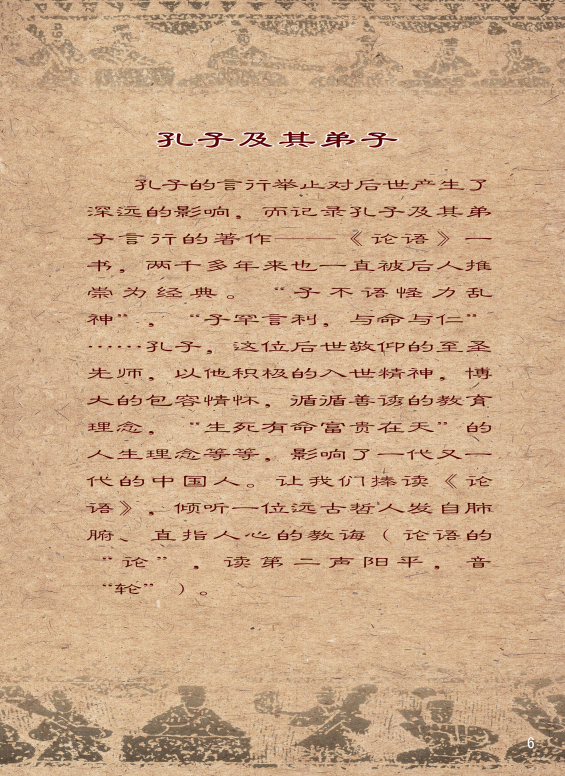 孔子及其弟子
孔子的言行举止对后世产生了
深远的影响，而记录孔子及其弟
子言行的著作——《论语》一
书，两千多年来也一直被后人推
崇为经典。“子不语怪力乱
神”，“子罕言利，与命与仁”
……孔子，这位后世敬仰的至圣
先师，以他积极的入世精神，博
大的包容情怀，循循善诱的教育
理念，“生死有命富贵在天”的
人生理念等等，影响了一代又一
代的中国人。让我们捧读《论
语》，倾听一位远古哲人发自肺
腑、直指人心的教诲（论语的
“论”，读第二声阳平，音
“轮”）。
6